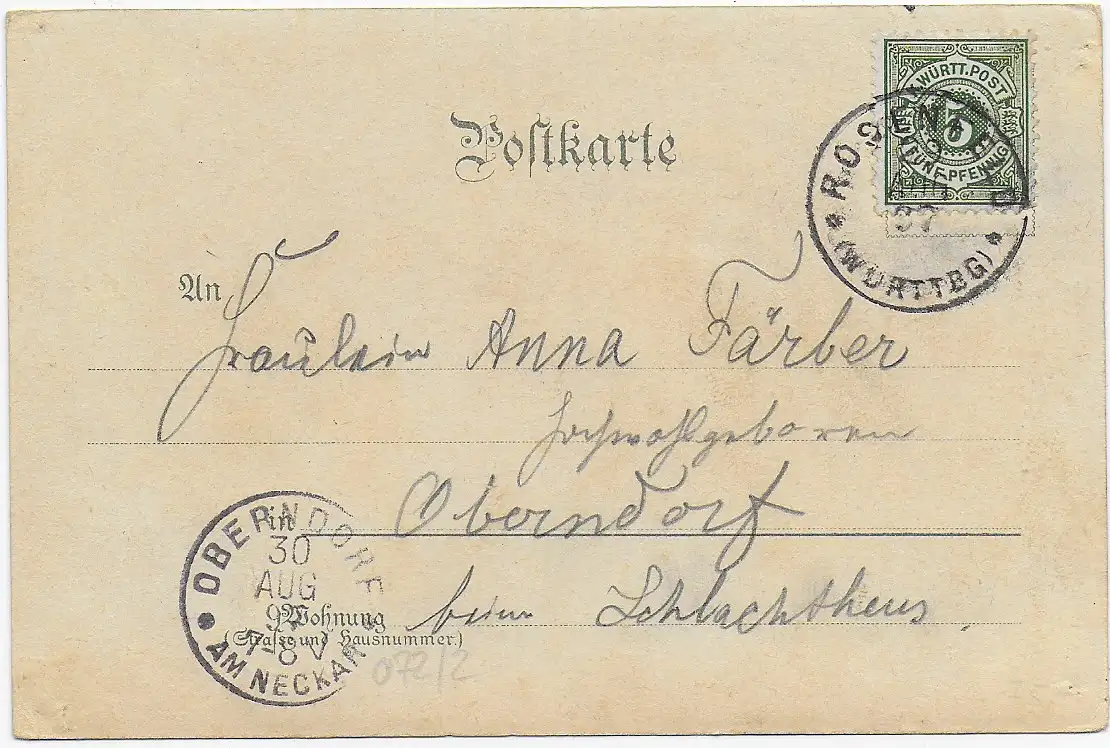 Postkarte
WÜRTT. POST
5
FÜNF PFENNIG
97
(WÜRTTBG)
An
Fräulein Anna Färber
Hochwohlgeboren
in
Oberndorf
OBERNDORF
30
AUG
97
7-8 V
AM NECKAR
beim Schlachthaus.
Wohnung
(Straße und Hausnummer.)
072/2